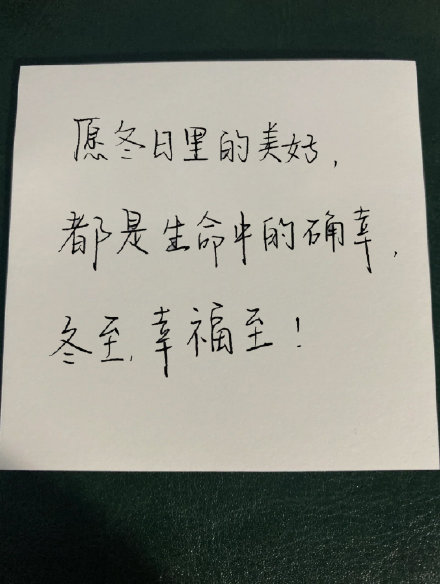 愿冬日里的美好,
都是生命中的确幸,
冬至,幸福至!